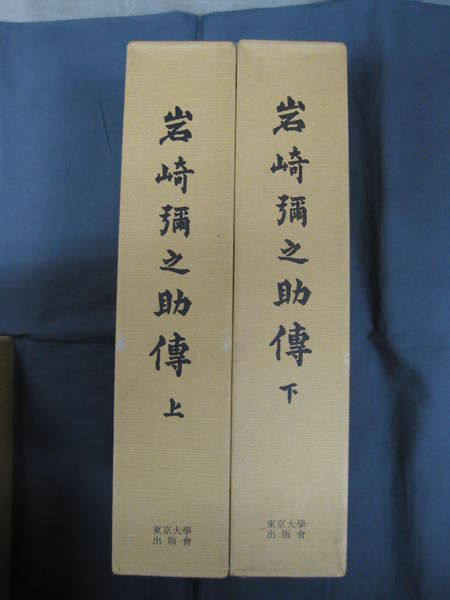 岩崎彌之助傳 上
東京大學
出版會
岩崎彌之助傳 下
東京大學
出版會